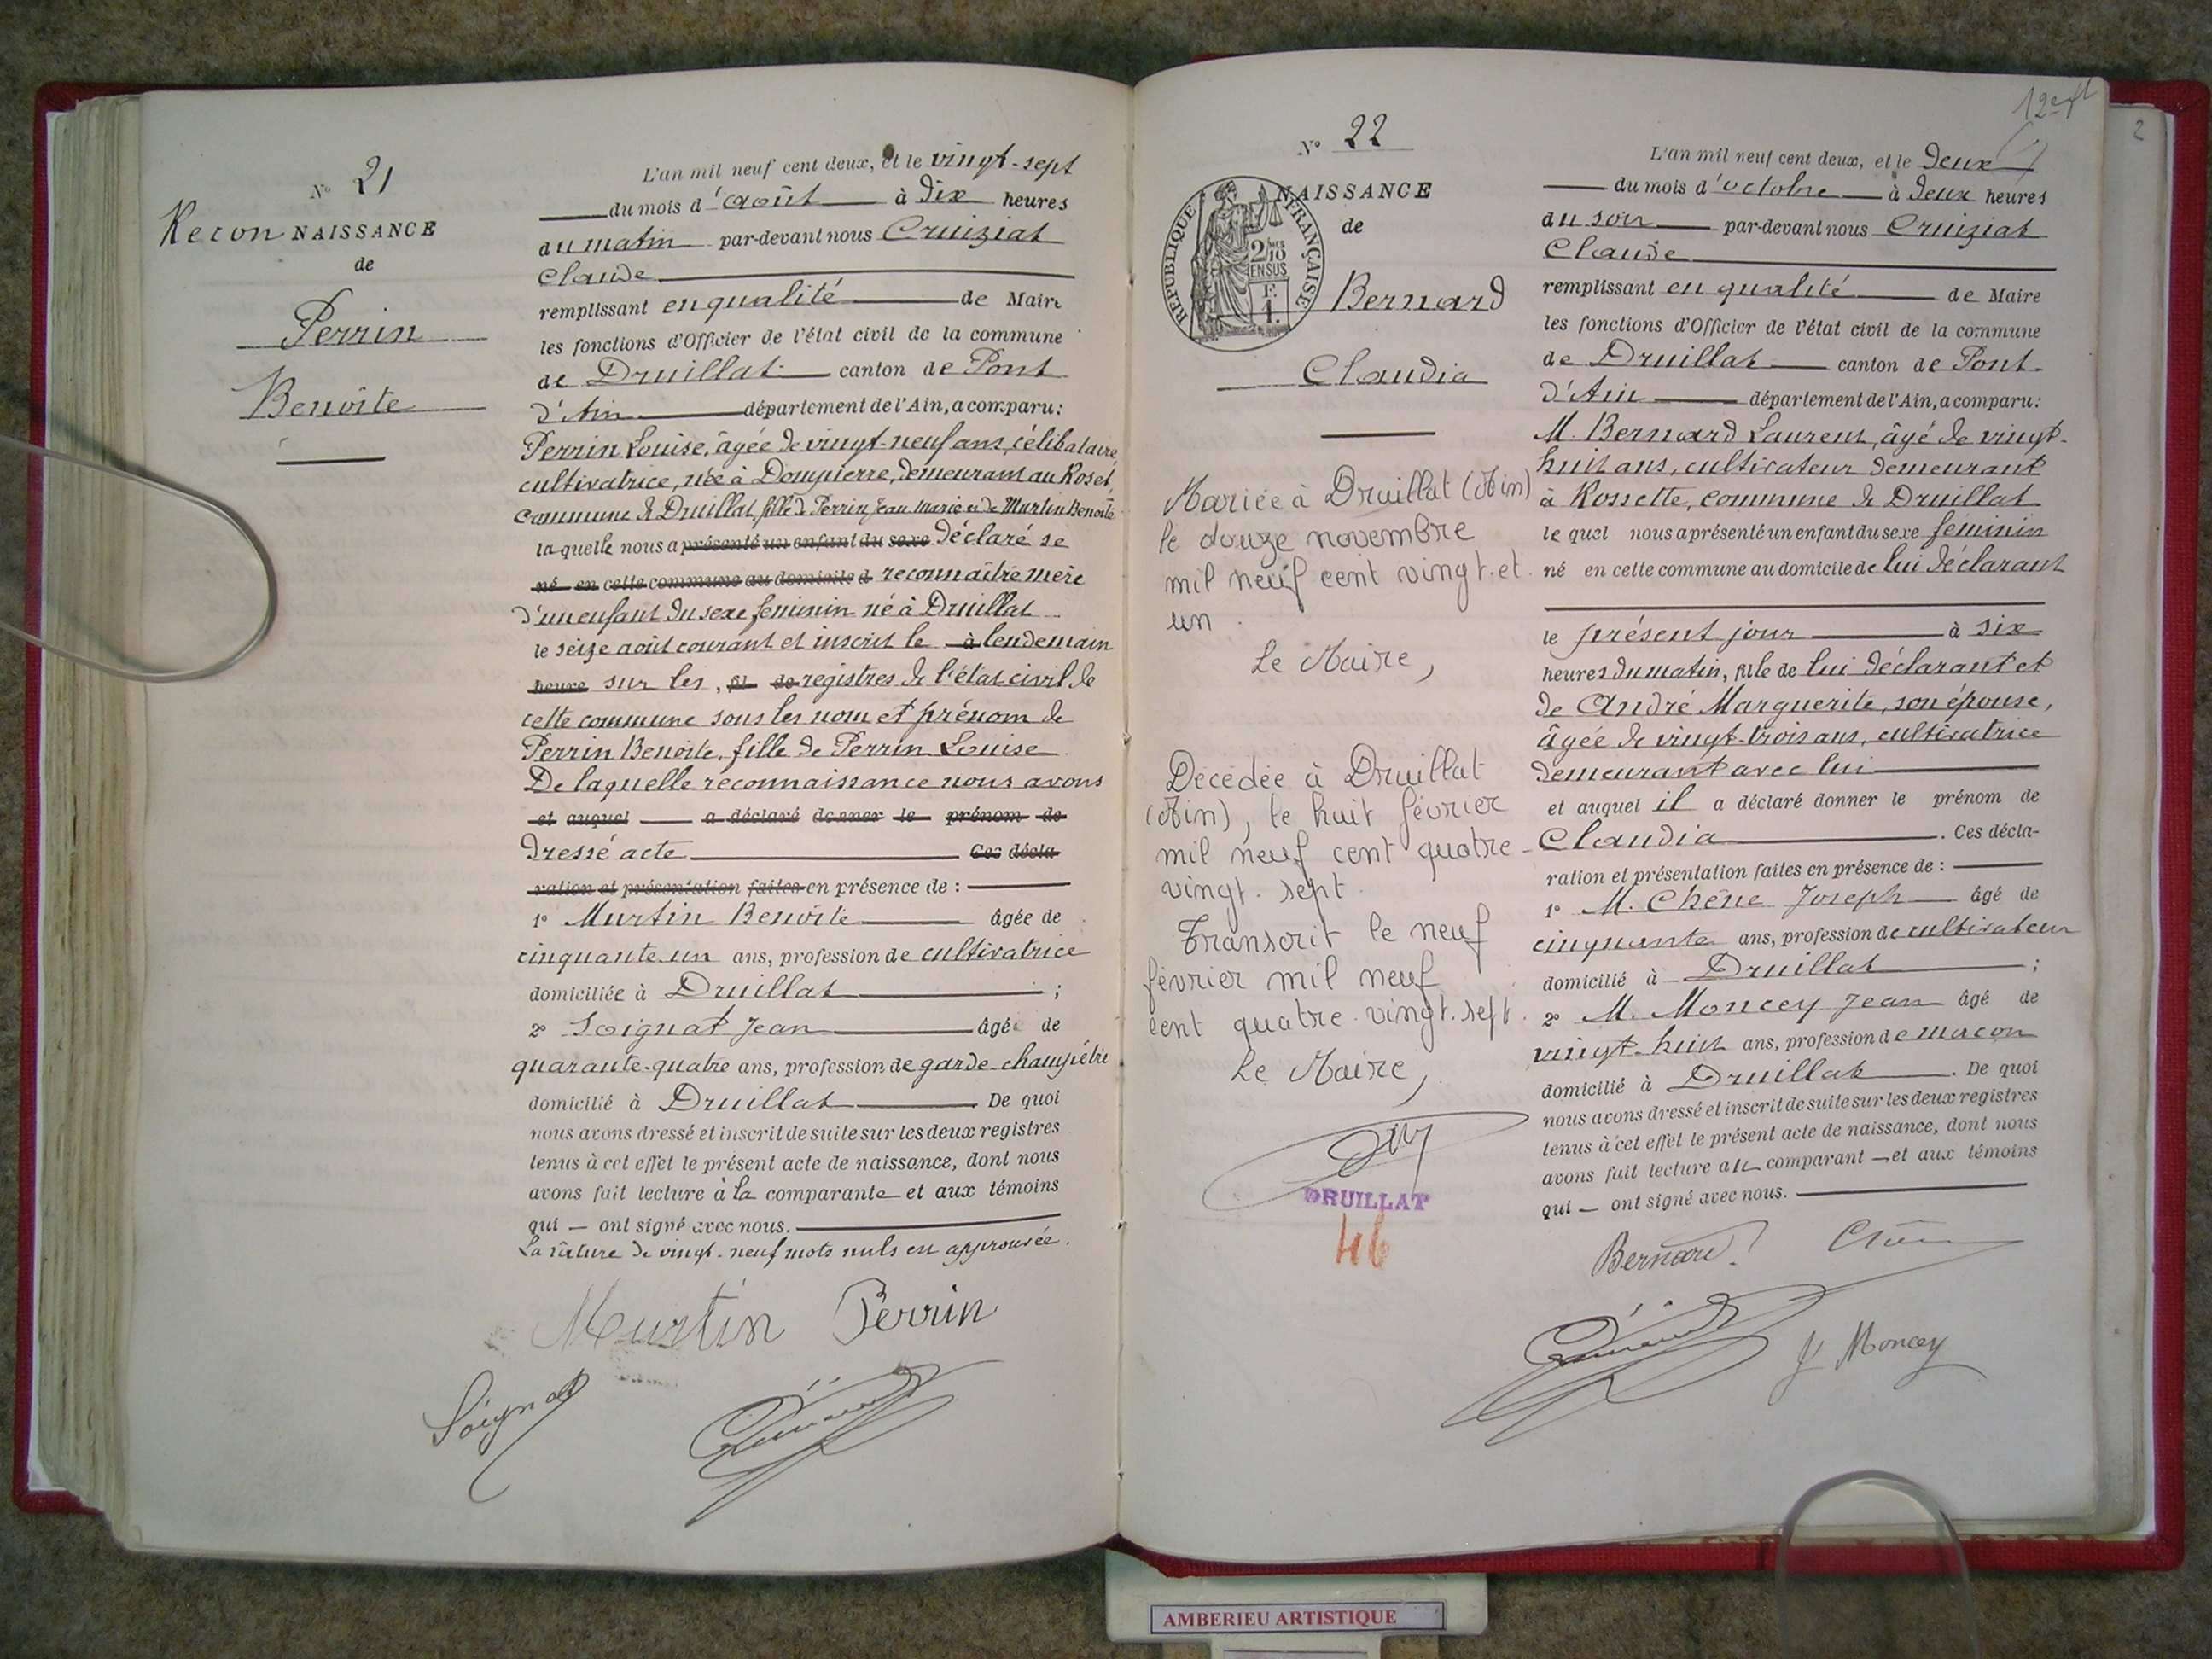 N° 21
Recon NAISSANCE
de
Perrin
Benoîte
L'an mil neuf cent deux, et le vingt-sept
du mois d'août à dix heures
du matin par-devant nous Cruiziat
Claude
remplissant en qualité de Maire
les fonctions d'Officier de l'état civil de la commune
de Druillat canton de Pont
d'Ain département de l'Ain, a comparu:
Perrin Louise, âgée de vingt-neuf ans, célibataire
cultivatrice, née à Dompierre, demeurant au Roset,
commune de Druillat, fille de Perrin Jean Marie et de Murtin Benoîte
laquelle nous a présenté un enfant du sexe déclaré se
né en cette commune au domicile d reconnaître mère
d'un enfant du sexe féminin né à Druillat
le seize août courant et inscrit le à lendemain
heure sur les, fil de registres de l'état civil de
cette commune sous les nom et prénom de
Perrin Benoîte, fille de Perrin Louise
De laquelle reconnaissance nous avons
et auquel a déclaré donner le prénom de
dressé acte Ces décla-
ration et présentation faites en présence de :
1° Murtin Benoîte âgée de
cinquante-un ans, profession de cultivatrice
domiciliée à Druillat ;
2° Soignat Jean âgé de
quarante-quatre ans, profession de garde-champêtre
domicilié à Druillat De quoi
nous avons dressé et inscrit de suite sur les deux registres
tenus à cet effet le présent acte de naissance, dont nous
avons fait lecture à la comparante et aux témoins
qui — ont signé avec nous.
La rature de vingt-neuf mots nuls est approuvée.
Murtin Perrin
Soignat
N° 22
NAISSANCE
de
REPUBLIQUE FRANÇAISE
2/10 EN SUS
Bernard
Claudia
Mariée à Druillat (Ain)
le douze novembre
mil neuf cent vingt-et-
un.
Le Maire,
Décédée à Druillat
(Ain), le huit février
mil neuf cent quatre-
vingt-sept.
Transcrit le neuf
février mil neuf
cent quatre-vingt-sept.
Le Maire,
DRUILLAT
46
2
L'an mil neuf cent deux, et le deux
du mois d'octobre à deux heures
du soir par-devant nous Cruiziat
Claude
remplissant en qualité de Maire
les fonctions d'Officier de l'état civil de la commune
de Druillat canton de Pont-
d'Ain département de l'Ain, a comparu:
M. Bernard Laurent, âgé de vingt-
huit ans, cultivateur demeurant
à Rossette, commune de Druillat
lequel nous a présenté un enfant du sexe féminin
né en cette commune au domicile de lui déclarant
le présent jour à six
heures du matin, fille de lui déclarant et
de André Marguerite, son épouse,
âgée de vingt-trois ans, cultivatrice
demeurant avec lui
et auquel il a déclaré donner le prénom de
Claudia. Ces décla-
ration et présentation faites en présence de :
1° M. Chêne Joseph âgé de
cinquante ans, profession de cultivateur
domicilié à Druillat ;
2° M. Moncey Jean âgé de
vingt-huit ans, profession de maçon
domicilié à Druillat. De quoi
nous avons dressé et inscrit de suite sur les deux registres
tenus à cet effet le présent acte de naissance, dont nous
avons fait lecture au comparant — et aux témoins
qui — ont signé avec nous.
Bernard Chêne
J Moncey
AMBERIEU ARTISTIQUE